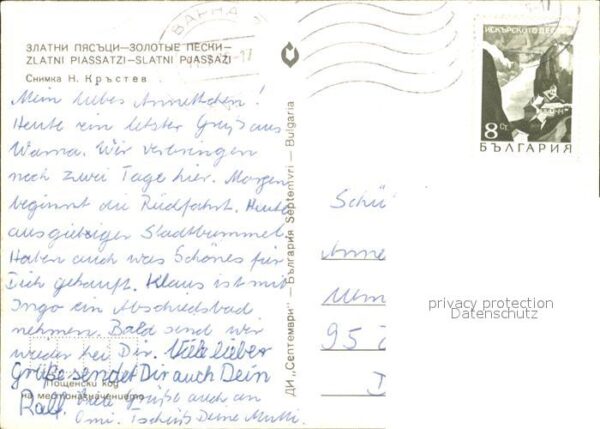 ВАРНА
ЗЛАТНИ ПЯСЪЦИ—ЗОЛОТЫЕ ПЕСКИ—
ZLATNI PIASSATZI—SLATNI PJASSAZI
Снимка Н. Кръстев
Mein liebes Annettchen!
Heute ein letzter Gruß aus
Warna. Wir verbringen
noch zwei Tage hier. Morgen
beginnt die Rückfahrt. Heute
ausgiebiger Stadtbummel.
Haben auch was Schönes für
Dich gekauft. Klaus ist mit
Ingo ein Abschiedsbad
nehmen. Bald sind wir
wieder bei Dir. Viele liebe
Grüße sendet Dir auch Dein
Ralf. Viele Grüße auch an
Omi. Tschüß Deine Mutti.
Пощенски код
на местоназначението
ДИ „Септември" — България Septemvri — Bulgaria
ИСКЪРСКОТО ДЕФ
8 СТ.
БЪЛГАРИЯ
Schü
Anne
Ulm
95
privacy protection
Datenschutz